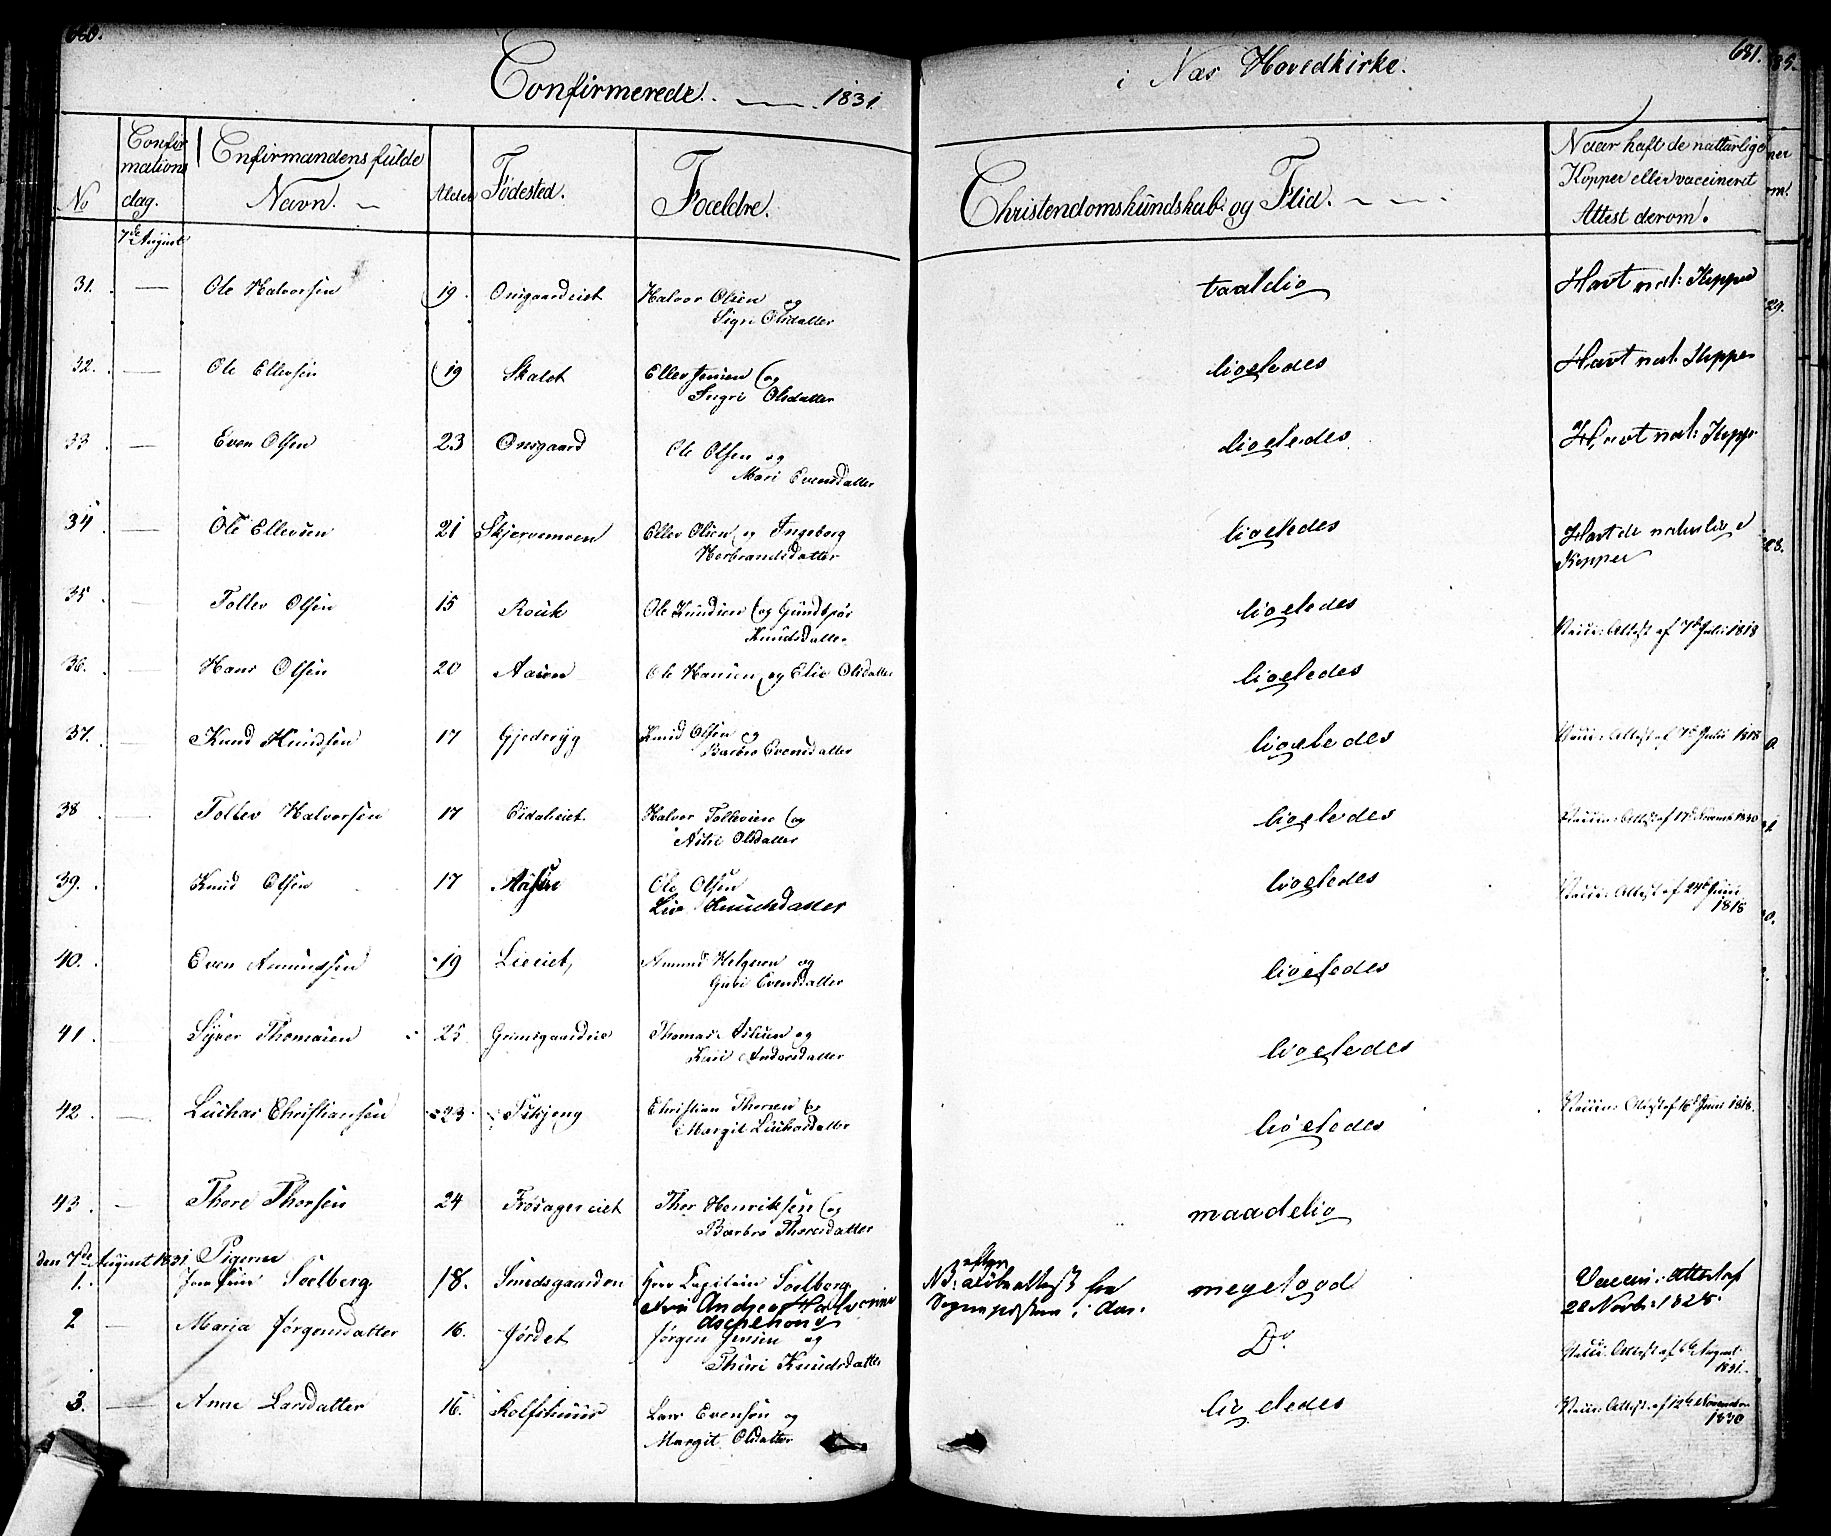 680.
Confirmerede. 1831.
i Næs Hovedkirke.
681.
No
Confirmations dag.
Confirmandens fulde Navn.
Alder
Fødested.
Forældre.
Christendomskundskab og Flid.
Naar haft de nattarlige Kopper eller vaccineret Attest derom.
7de August
31. Ole Halvorsen 19. Onsgaardeiet Halvor Olsen og taalelig Havt nat: Kopper
Sigri Olsdatter
32. Ole Ellevsen 19 Skalet Ellev Jensen og ligeledes Havt nat: Kopper
Sigri Olsdatter
33 Even Olsen 23 Onsgaard Ole Olsen og ligeledes Havt nat: Kopper
Mari Evensdatter
34 Ole Ellevsen 21 Skjervemoen Ellev Olsen og Ingeborg ligeledes Havt de naturlige
Herbrandsdatter Kopper
35 Tollev Olsen 15 Rouk Ole Knudsen og Gundbjør ligeledes Vacc: Attest af 7de Juli 1818
Knudsdatter
36. Hans Olsen 20 Aasen Ole Hansen og Elie Olsdatter ligeledes
37. Knud Knudsen 17 Gjederyg Knud Olsen og ligeledes Vacc: Attest af 7de Julii 1818
Barbro Evensdatter
38 Tollev Halvorsen 17 Eidaleiet. Halvor Tollevsen og ligeledes Vaccin: Attest af 17de Novemb 1830
Astri Olsdatter
39. Knud Olsen 17 Aasen Ole Olsen ligeledes Vacc: Attest af 24de Juni
Liv Knudsdatter 1818
40. Even Amundsen 19 Lieeiet Amund Helgesen og ligeledes
Guri Evensdatter
41. Syver Thomasen 25 Grimsgaardeie Thomas og ligeledes
Kari Andersdatter
42. Christiansen 23 Christian Thorsen og ligeledes Vaccin: Attest af Juni 1818.
Margit
43. Thore Thorsen 24 Frøsagereiet Thor Henriksen og maadelig
Barbro Thoresdatter
den 7de August 1831 Pigerne
1. Soelberg 18. Smedsgaarden Herr Capitain Soelberg NB: Døbeattest fra meget god Vaccin: Attest af
Andrea Sognepresten i Aas. 22 Novbr: 1828.
2 Maria Jørgensdatter 16. Jordet Jørgen Jensen og Do Vacc: Attest af 6te August
Thuri Knudsdatter 1831.
3. Anne Larsdatter 16. Rolfshuus Lars Evensen og ligeledes Vacc: Attest af 12te November
Margit Olsdatter 1830